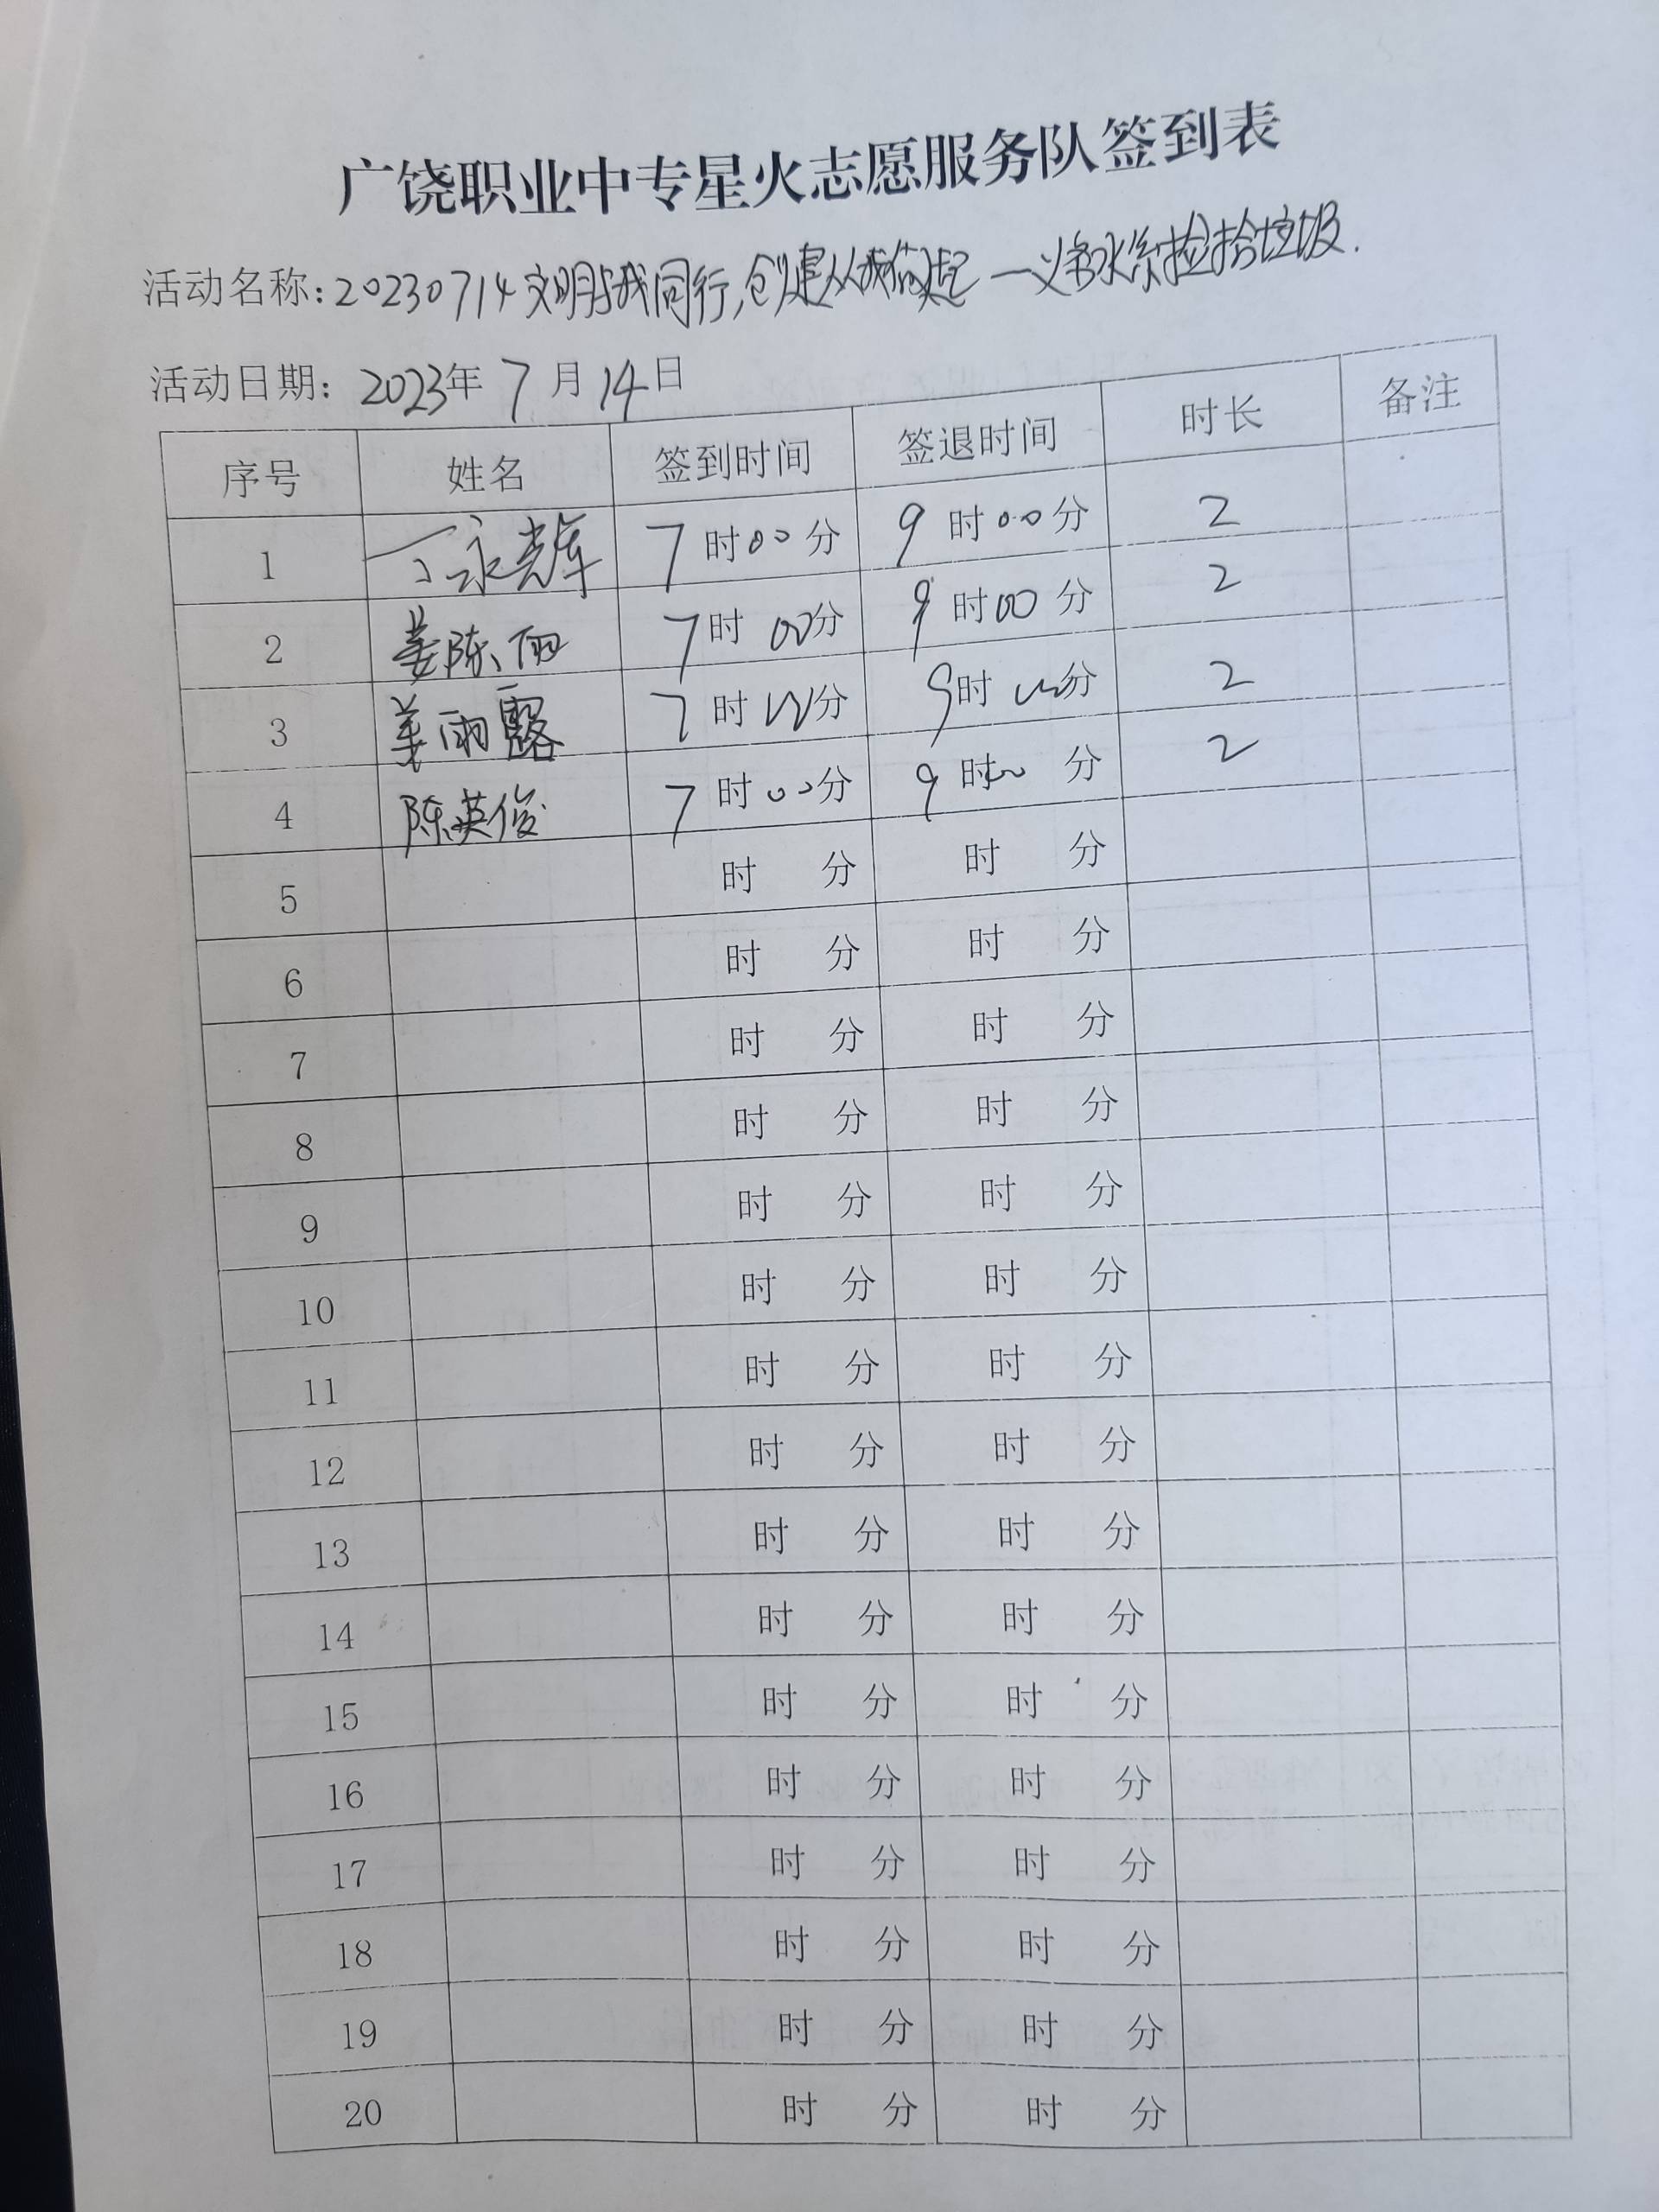 广饶职业中专星火志愿服务队签到表
活动名称：20230714文明与我同行，创建从我做起——水系捡拾垃圾.
活动日期：2023年7月14日
序号 姓名 签到时间 签退时间 时长 备注
1 丁永光军 7时00分 9时00分 2
2 姜陈雨 7时00分 9时00分 2
3 姜雨露 7时00分 9时00分 2
4 陈英俊 7时00分 9时00分 2
5 时 分 时 分
6 时 分 时 分
7 时 分 时 分
8 时 分 时 分
9 时 分 时 分
10 时 分 时 分
11 时 分 时 分
12 时 分 时 分
13 时 分 时 分
14 时 分 时 分
15 时 分 时 分
16 时 分 时 分
17 时 分 时 分
18 时 分 时 分
19 时 分 时 分
20 时 分 时 分